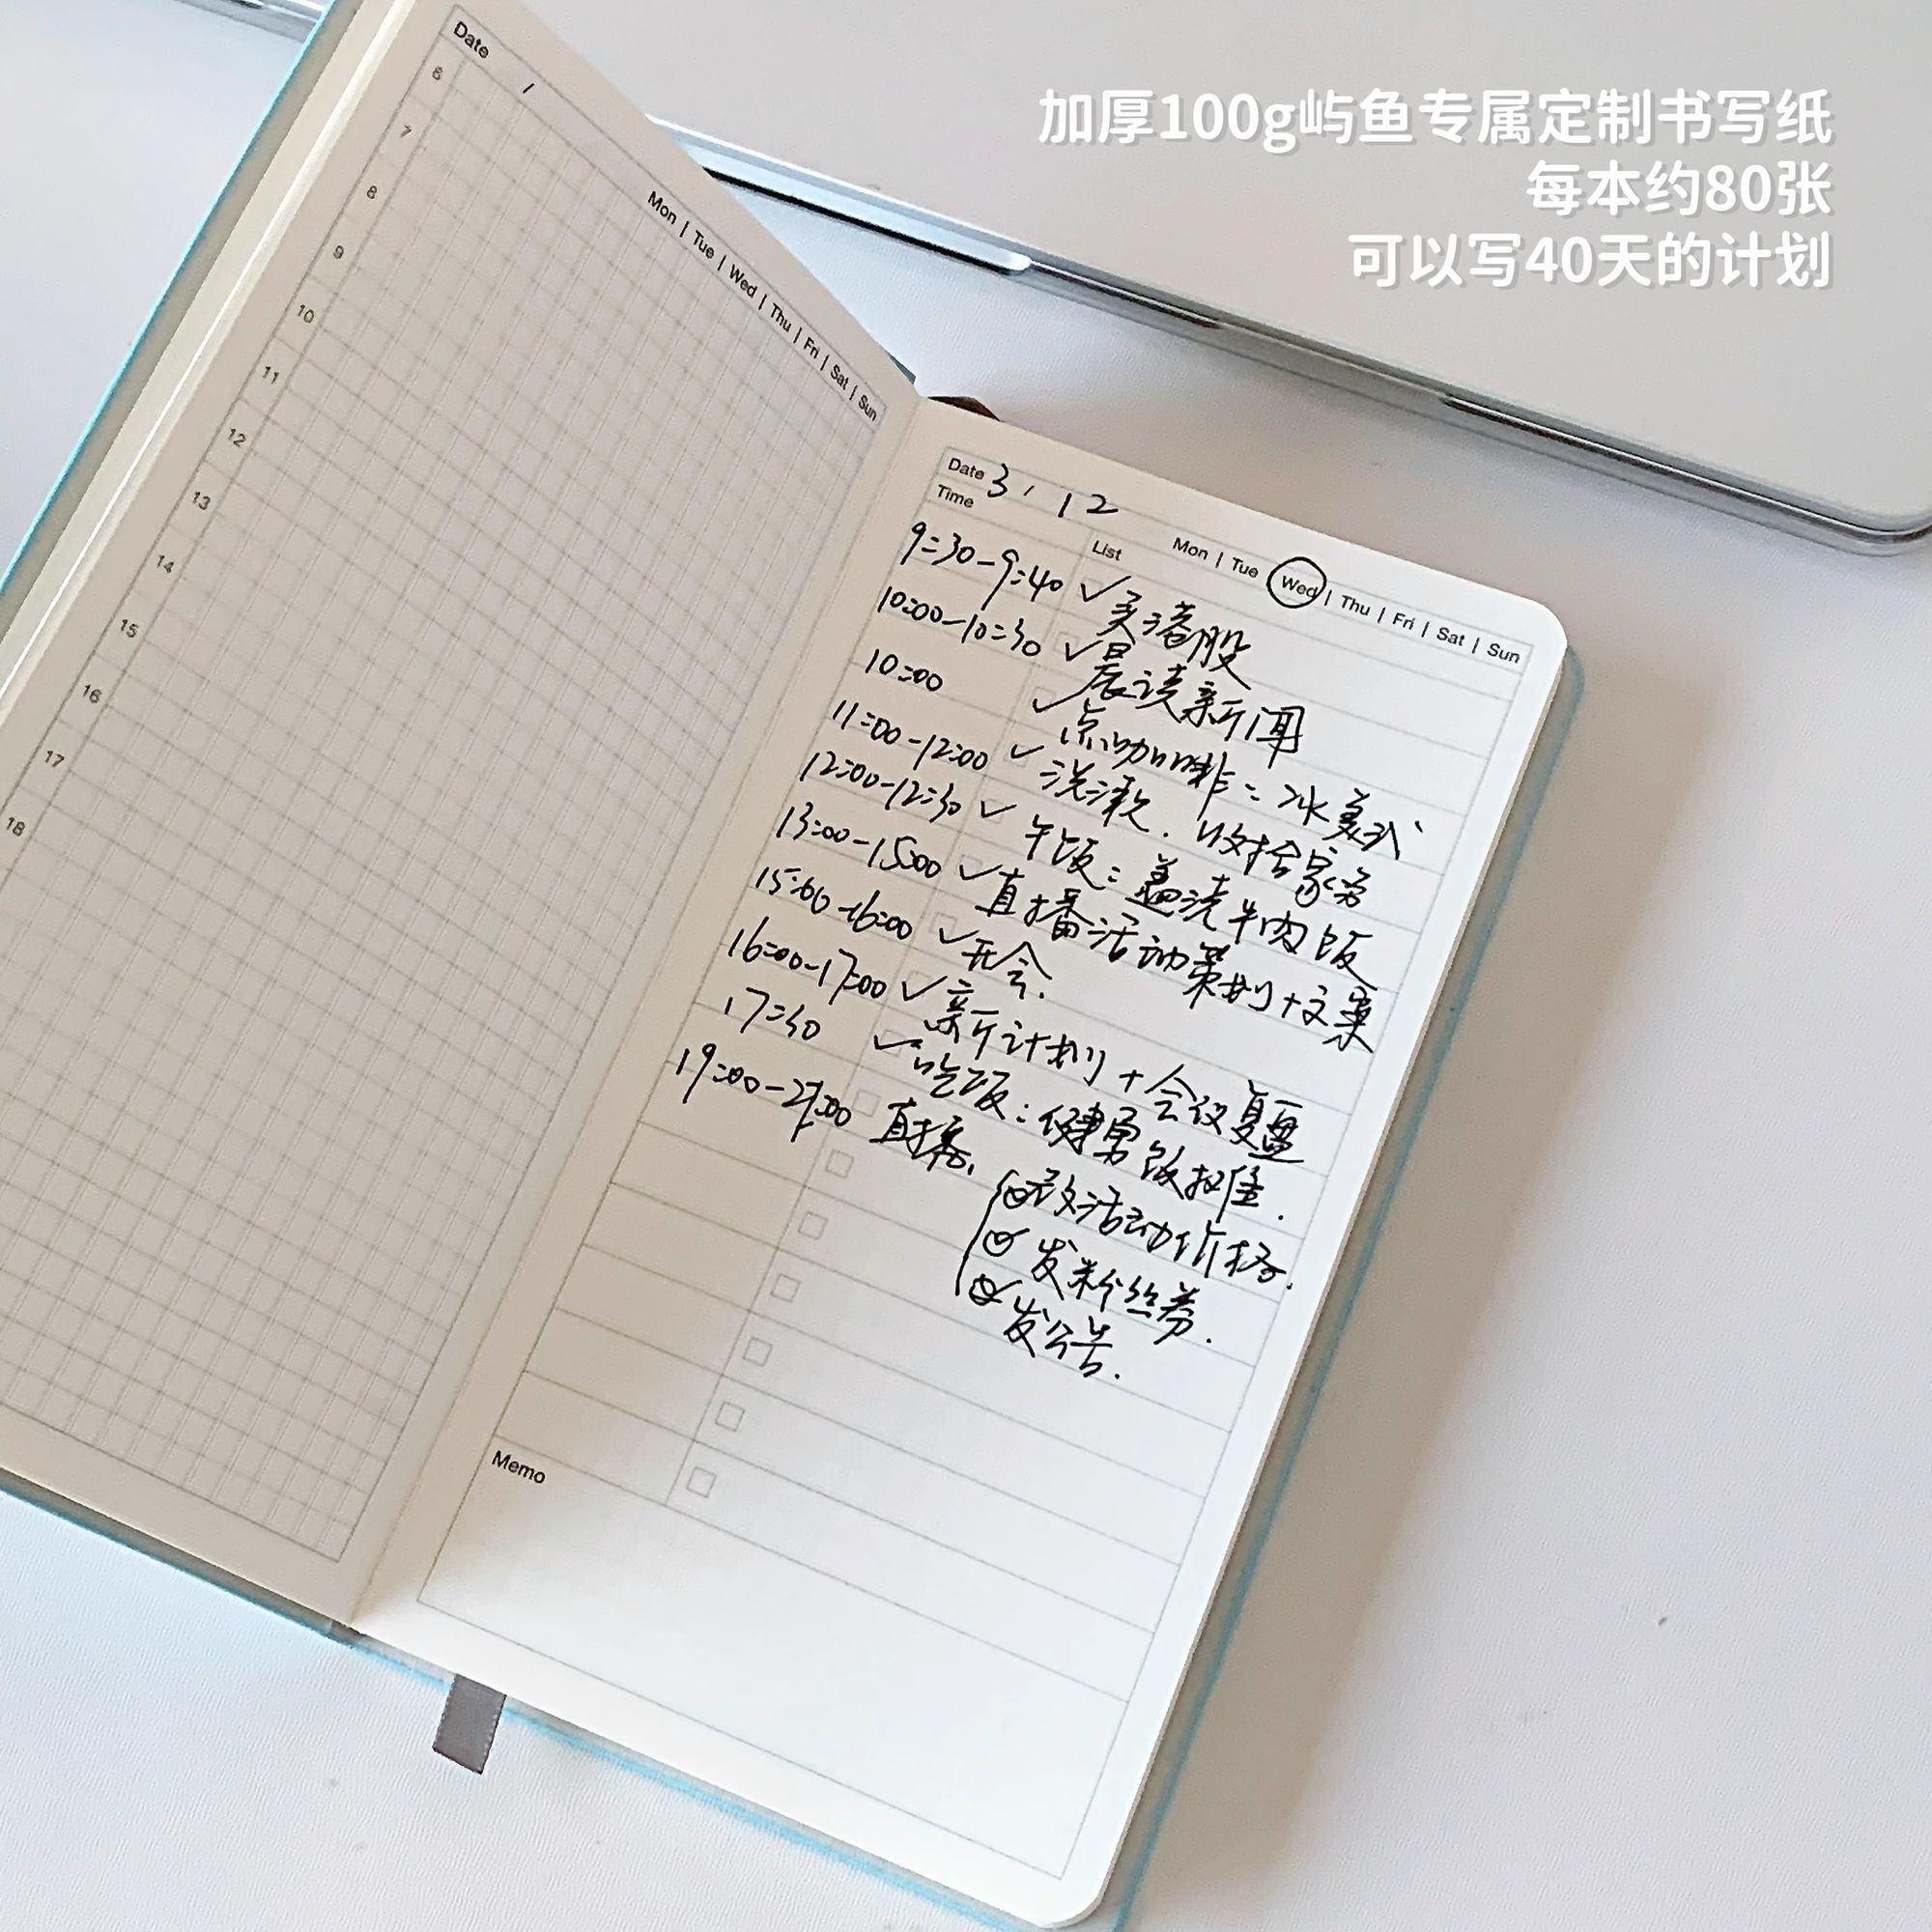 加厚100g屿鱼专属定制书写纸
每本约80张
可以写40天的计划
Date /
Mon | Tue | Wed | Thu | Fri | Sat | Sun
6
7
8
9
10
11
12
13
14
15
16
17
18
Date 3 / 12
Mon | Tue | Wed | Thu | Fri | Sat | Sun
Time List
9:30-9:40 ✓ 买港股
10:00-10:30 ✓ 晨读新闻
10:00 ✓ 点咖啡:冰美式
11:00-12:00 ✓ 洗漱.收拾家务
12:00-12:30 ✓ 午饭:盖浇牛肉饭
13:00-15:00 ✓ 直播活动策划+文案
15:00-16:00 ✓ 开会.
16:00-17:00 ✓ 新计划+会议复盘
17:30 ✓ 吃饭:健身饭
19:00-21:00 直播.
改活动价格.
发粉丝券.
发公告.
Memo